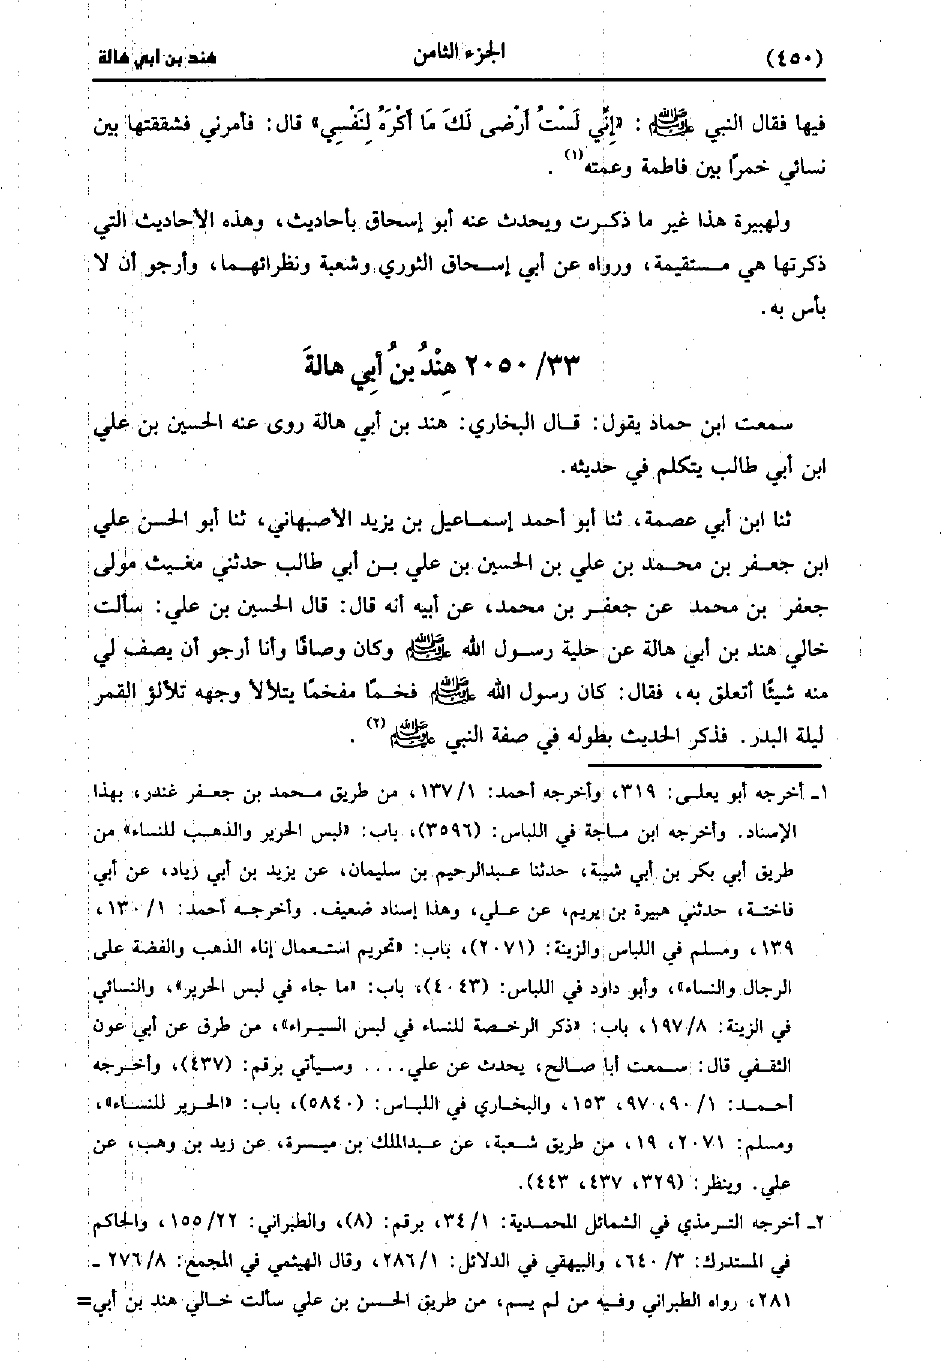 (٤٥٠) الجزء الثامن هند بن أبي هالة
فيها فقال النبي ﷺ : «إِنِّي لَسْتُ أَرْضى لَكَ مَا أَكْرَهُ لِنَفْسِي» قال: فأمرني فشققتها بين
نسائي خمرًا بين فاطمة وعمته(١) .
ولهبيرة هذا غير ما ذكرت ويحدث عنه أبو إسحاق بأحاديث، وهذه الأحاديث التي
ذكرتها هي مستقيمة، ورواه عن أبي إسحاق الثوري وشعبة ونظرائهما، وأرجو أن لا
بأس به.
٢٠٥٠/٣٣ هِنْدُ بنُ أَبِي هالةَ
سمعت ابن حماد يقول: قال البخاري: هند بن أبي هالة روى عنه الحسين بن علي
ابن أبي طالب يتكلم في حديثه.
ثنا ابن أبي عصمة، ثنا أبو أحمد إسماعيل بن يزيد الأصبهاني، ثنا أبو الحسن علي
ابن جعفر بن محمد بن علي بن الحسين بن علي بن أبي طالب حدثني مغيث مولى
جعفر بن محمد عن جعفر بن محمد، عن أبيه أنه قال: قال الحسين بن علي: سألت
خالي هند بن أبي هالة عن حلية رسول الله ﷺ وكان وصافًا وأنا أرجو أن يصف لي
منه شيئًا أتعلق به، فقال: كان رسول الله ﷺ فخمًا مفخمًا يتلألأ وجهه تلألؤ القمر
ليلة البدر. فذكر الحديث بطوله في صفة النبي ﷺ(٢) .
١ـ أخرجه أبو يعلى: ٣١٩، وأخرجه أحمد: ١٣٧/١، من طريق محمد بن جعفر غندر، بهذا
الإسناد. وأخرجه ابن ماجة في اللباس: (٣٥٩٦)، باب: «لبس الحرير والذهب للنساء» من
طريق أبي بكر بن أبي شيبة، حدثنا عبدالرحيم بن سليمان، عن يزيد بن أبي زياد، عن أبي
فاختة، حدثني هبيرة بن يريم، عن علي، وهذا إسناد ضعيف. وأخرجه أحمد: ١٣٠/١،
١٣٩، ومسلم في اللباس والزينة: (٢٠٧١)، باب: «تحريم استعمال إناء الذهب والفضة على
الرجال والنساء»، وأبو داود في اللباس: (٤٠٤٣)، باب: «ما جاء في لبس الحرير»، والنسائي
في الزينة: ١٩٧/٨، باب: «ذكر الرخصة للنساء في لبس السيراء»، من طرق عن أبي عون
الثقفي قال: سمعت أبا صالح، يحدث عن علي.... وسيأتي برقم: (٤٣٧)، وأخرجه
أحمد: ٩٠/١، ٩٧، ١٥٣، والبخاري في اللباس: (٥٨٤٠)، باب: «الحرير للنساء»،
ومسلم: ٢٠٧١، ١٩، من طريق شعبة، عن عبدالملك بن ميسرة، عن زيد بن وهب، عن
علي. وينظر: (٣٢٩، ٤٣٧، ٤٤٣).
٢ـ أخرجه الترمذي في الشمائل المحمدية: ٣٤/١، برقم: (٨)، والطبراني: ١٥٥/٢٢، والحاكم
في المستدرك: ٦٤٠/٣، والبيهقي في الدلائل: ٢٨٦/١، وقال الهيثمي في المجمع: ٢٧٦/٨ ـ
٢٨١، رواه الطبراني وفيه من لم يسم، من طريق الحسن بن علي سألت خالي هند بن أبي=